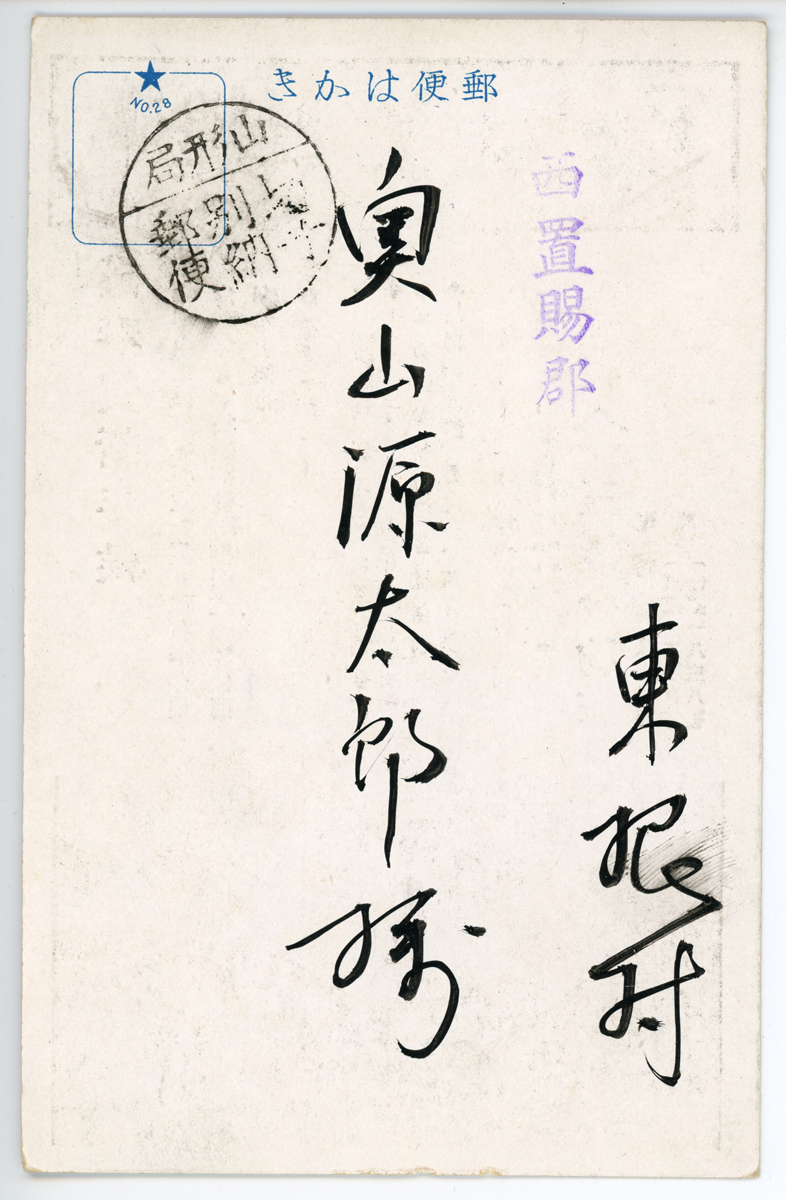 郵便はかき
No.28
山形局
別納
郵便
西置賜郡
東根村
奥山源太郎様